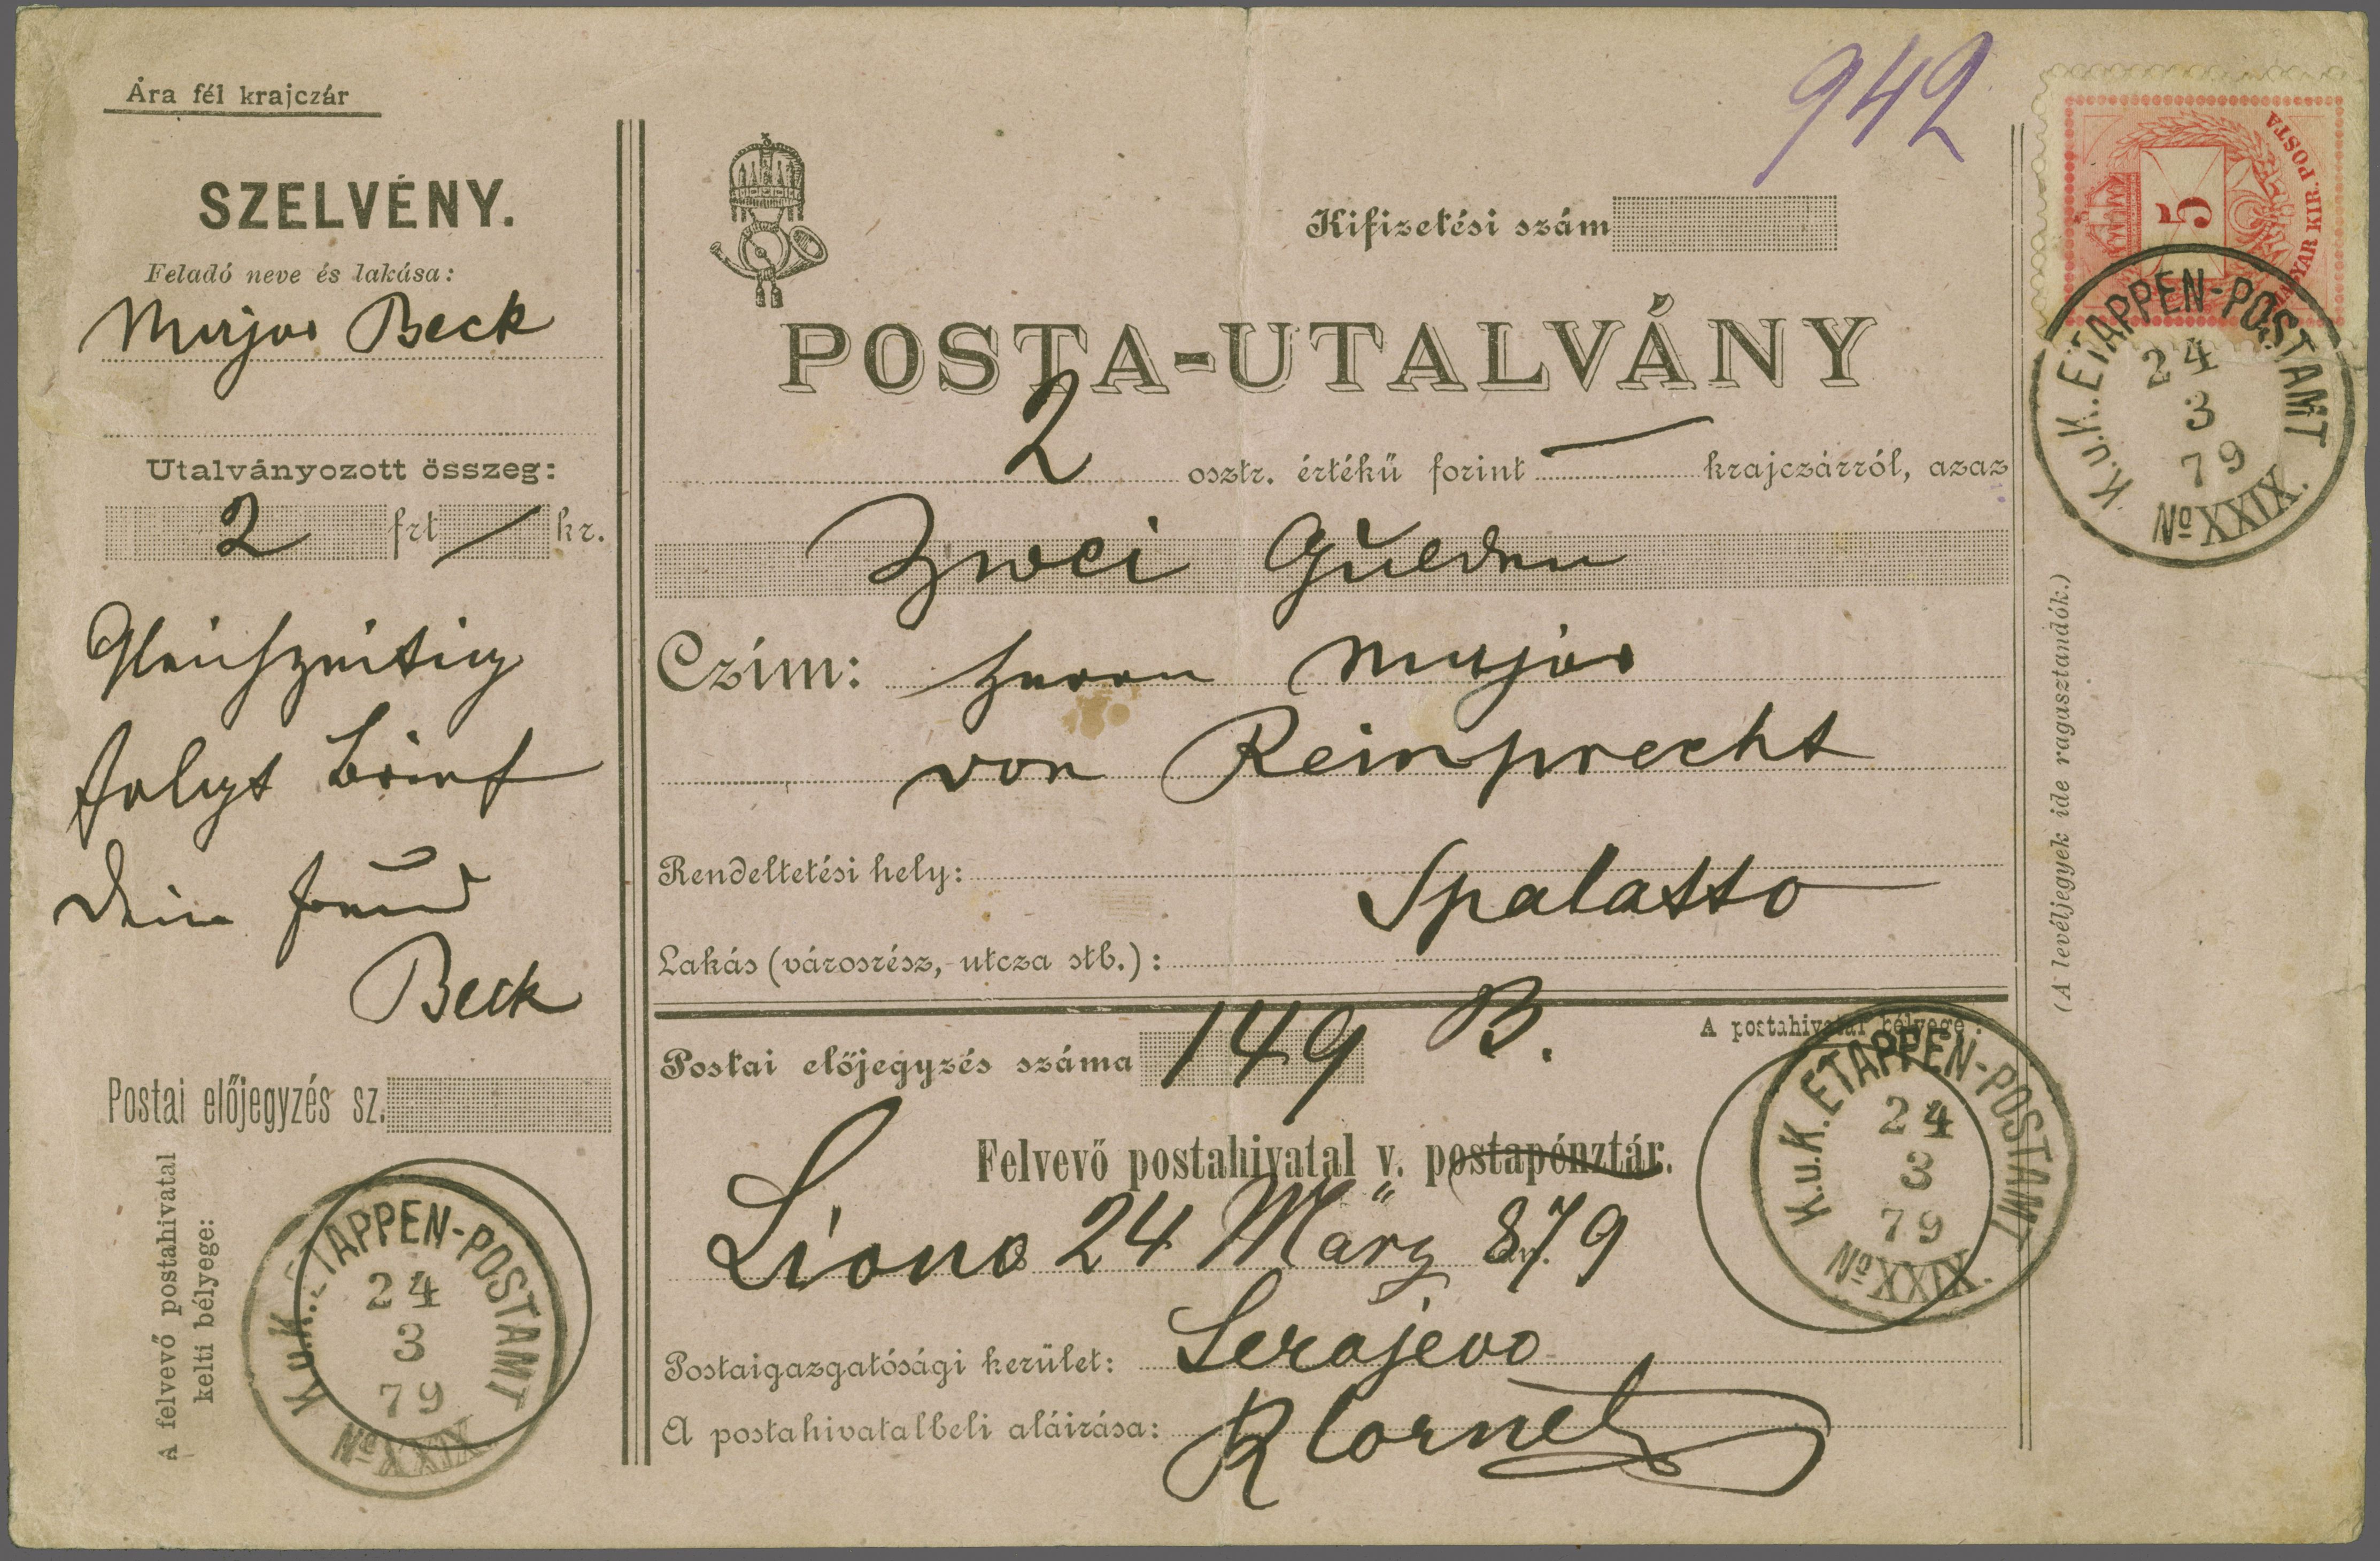 Ára fél krajczár
SZELVÉNY.
Feladó neve és lakása:
Major Beck
Utalványozott összeg:
2 frt — kr.
Gleichzeitig
folgt Brief
Dein Freund
Beck
Postai előjegyzés sz.
A felvevő postahivatal
kelti bélyege:
K.u.K. ETAPPEN-POSTAMT
24
3
79
No XXIX.
942
Kifizetési szám
POSTA-UTALVÁNY
2 osztr. értékű forint — krajczárról, azaz
Zwei Gulden
Czím: Herrn Major
von Reinprecht
Rendeltetési hely:
Spalatto
Lakás (városrész, utcza stb.):
Postai előjegyzés száma 149 B.
A postahivatal bélyege:
Felvevő postahivatal v. postapénztár.
Livno 24 März 879
Postaigazgatósági kerület: Serajevo
A postahivatalbeli aláirása:
K.u.K. ETAPPEN-POSTAMT
24
3
79
No XXIX.
MAGYAR KIR. POSTA
5
K.u.K. ETAPPEN-POSTAMT
24
3
79
No XXIX.
(A levéljegyek ide ragasztandók.)